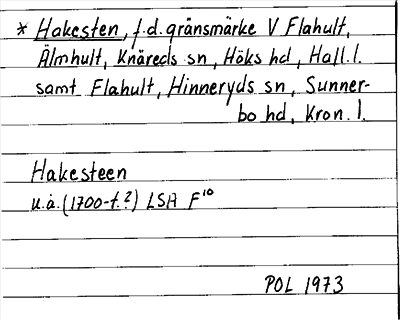 * Hakesten, f.d. gränsmärke V Flahult,
Älmhult, Knäreds sn, Höks hd, Hall. l.
samt Flahult, Hinneryds sn, Sunner-
bo hd, Kron. l.
Hakesteen
u.å. (1700-t.?) LSA F¹⁰
POL 1973